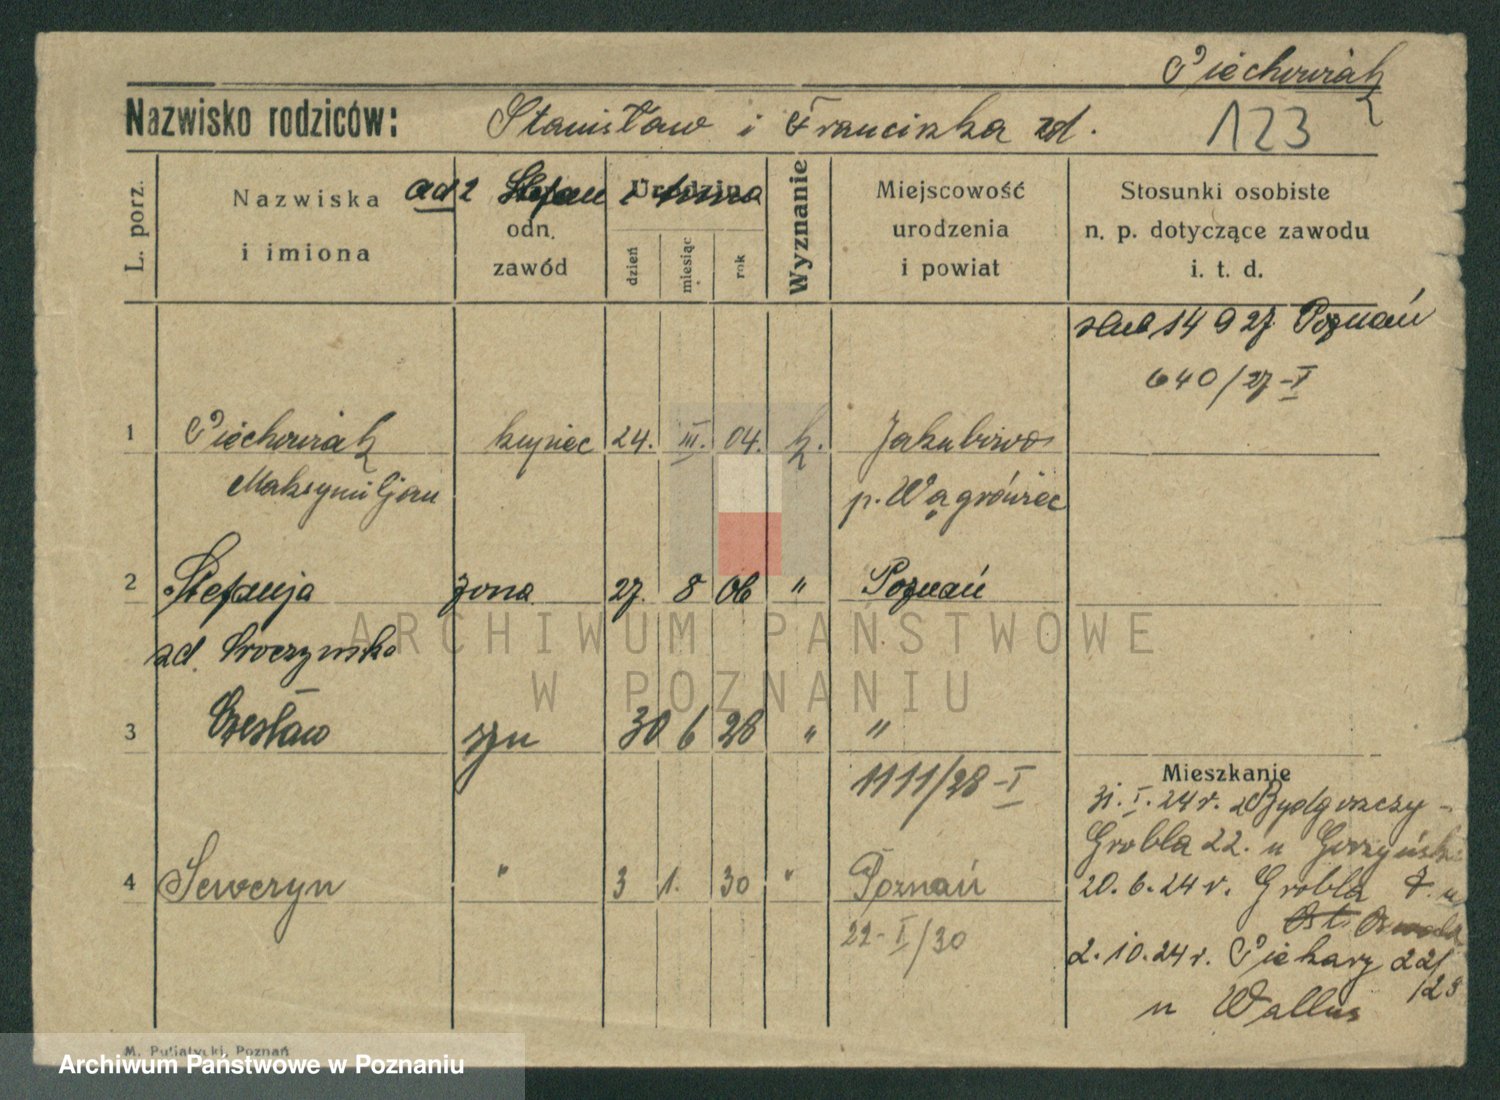 Piechowiak
Nazwisko rodziców: Stanisław i Franciszka zd. 123
L. porz.
Nazwiska i imiona
ad 2 Stefan i Anna
odn. zawód
Urodzin
dzień
miesiąc
rok
Wyznanie
Miejscowość urodzenia i powiat
Stosunki osobiste n. p. dotyczące zawodu i. t. d.
14 9 27 Poznań
640/27-I
1 Piechowiak kupiec 24. III. 04. k. Jakubowo
Maksymiljan p. Wągrówiec
2 Stefanja żona 27. 8 06 " Poznań
zd.
3 Czesław syn 30 6 28 " "
1111/28-I
Mieszkanie
31. I. 24 r. z Bydgoszczy -
Grobla 22. u Gorzyńsk
4 Seweryn " 3 1. 30 " Poznań
20.6.24 r. Grobla
22-I/30
2.10.24 r. Piekary 22/
/23
u Wallus
M. Putiatycki, Poznań
ARCHIWUM PAŃSTWOWE
W POZNANIU
Archiwum Państwowe w Poznaniu